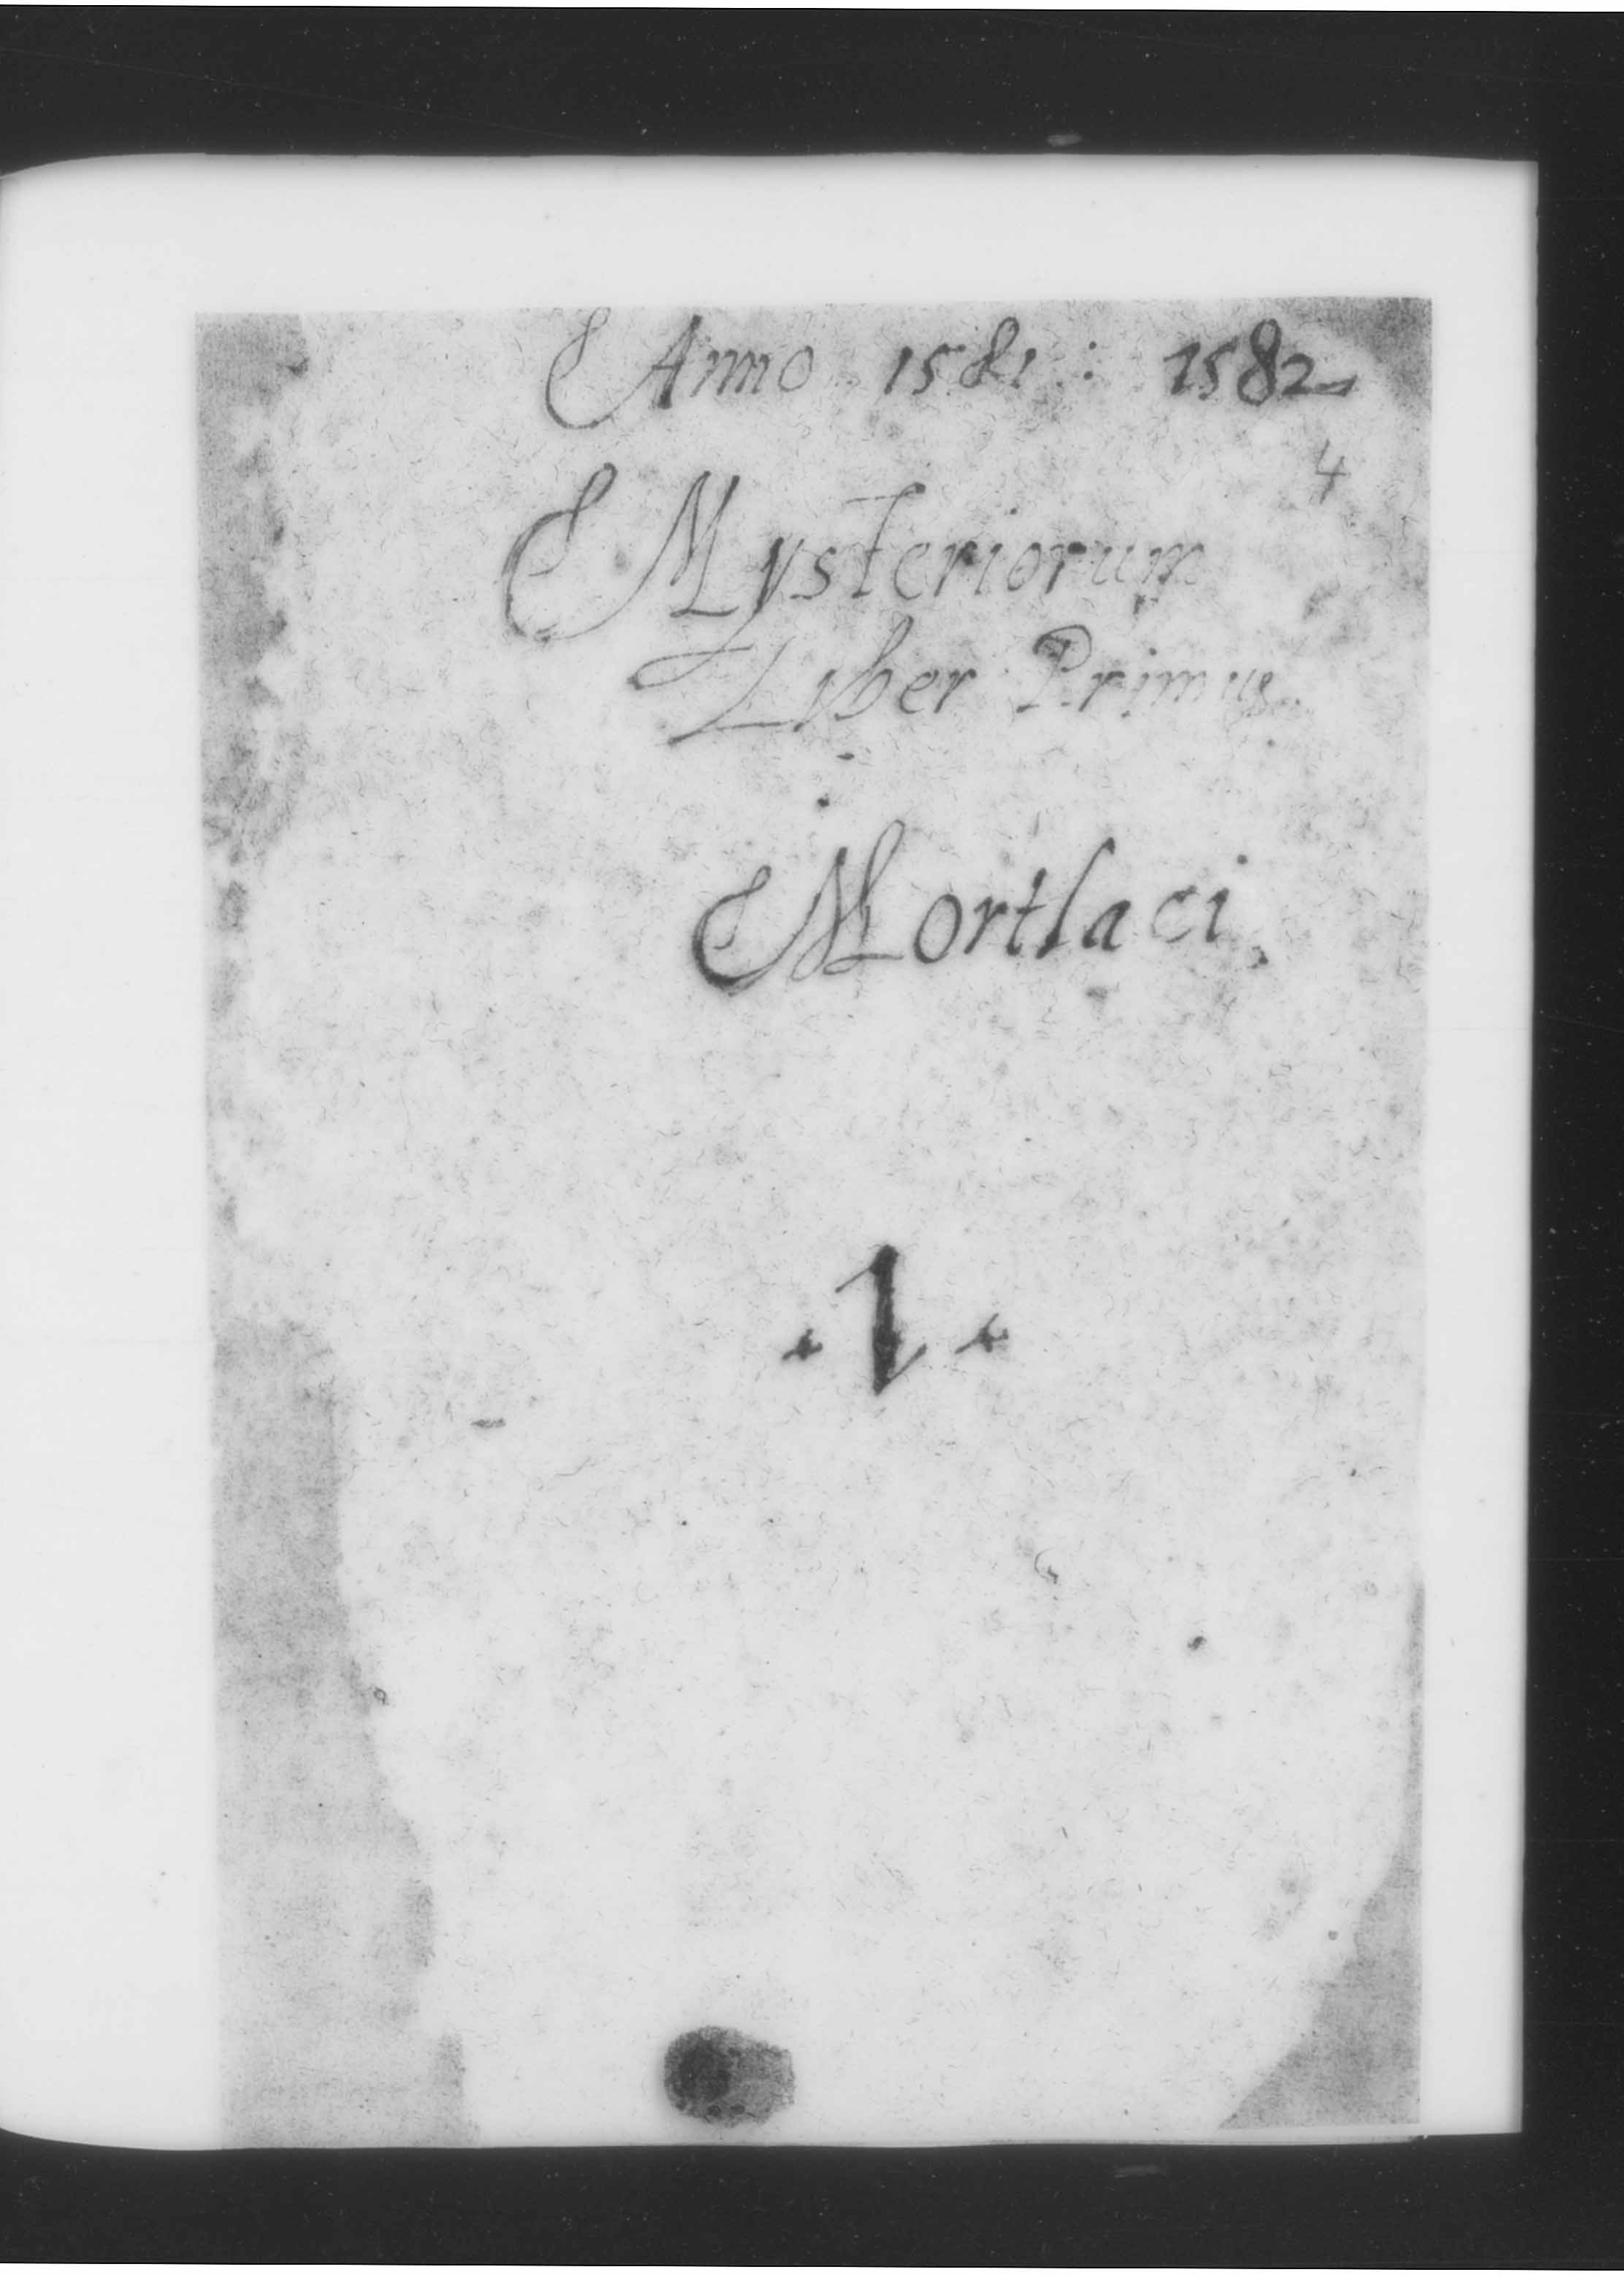 Anno 1581 : 1582
4
Mysteriorum
Liber Primus.
Mortlaci.
.1.